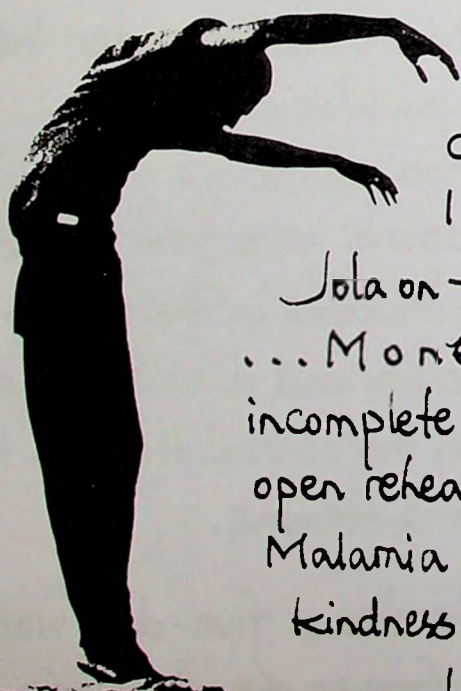 Jola on
... Mon
incomplete
open rehea
Malamia
kindness